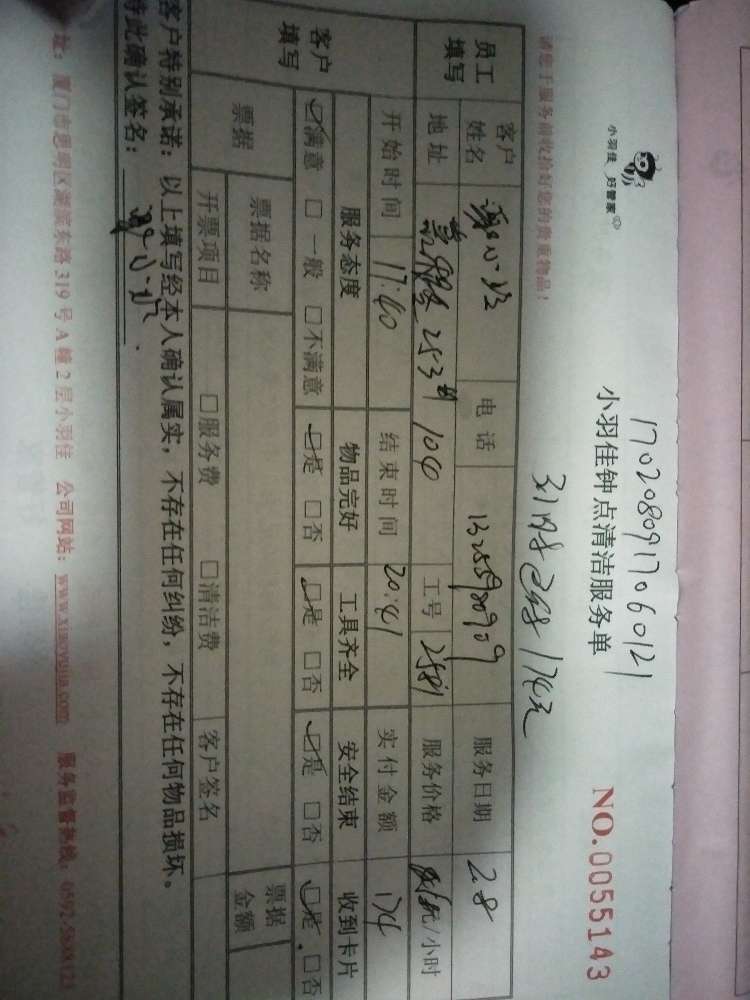 小羽佳 好管家
1702080917060121
小羽佳钟点清洁服务单
NO.0055143
请您于服务前收拾好您的贵重物品！
174元
员工填写
客户姓名
电话
服务日期 2.8
地址 253# 104
工号
服务价格 元/小时
开始时间 17:40
结束时间 20:41
实付金额 174
客户填写
服务态度 物品完好 工具齐全 安全结束 收到卡片
☑满意 □一般 □不满意 ☑是 □否 ☑是 □否 ☑是 □否 ☑是 □否
票据
票据名称
票据金额
开票项目 □服务费 □清洁费 客户签名
客户特别承诺：以上填写经本人确认属实，不存在任何纠纷，不存在任何物品损坏。
特此确认签名：
址：厦门市思明区湖滨东路319号A幢2层小羽佳 公司网站：www.xiaoyujia.com 服务监督热线：0592-5608123